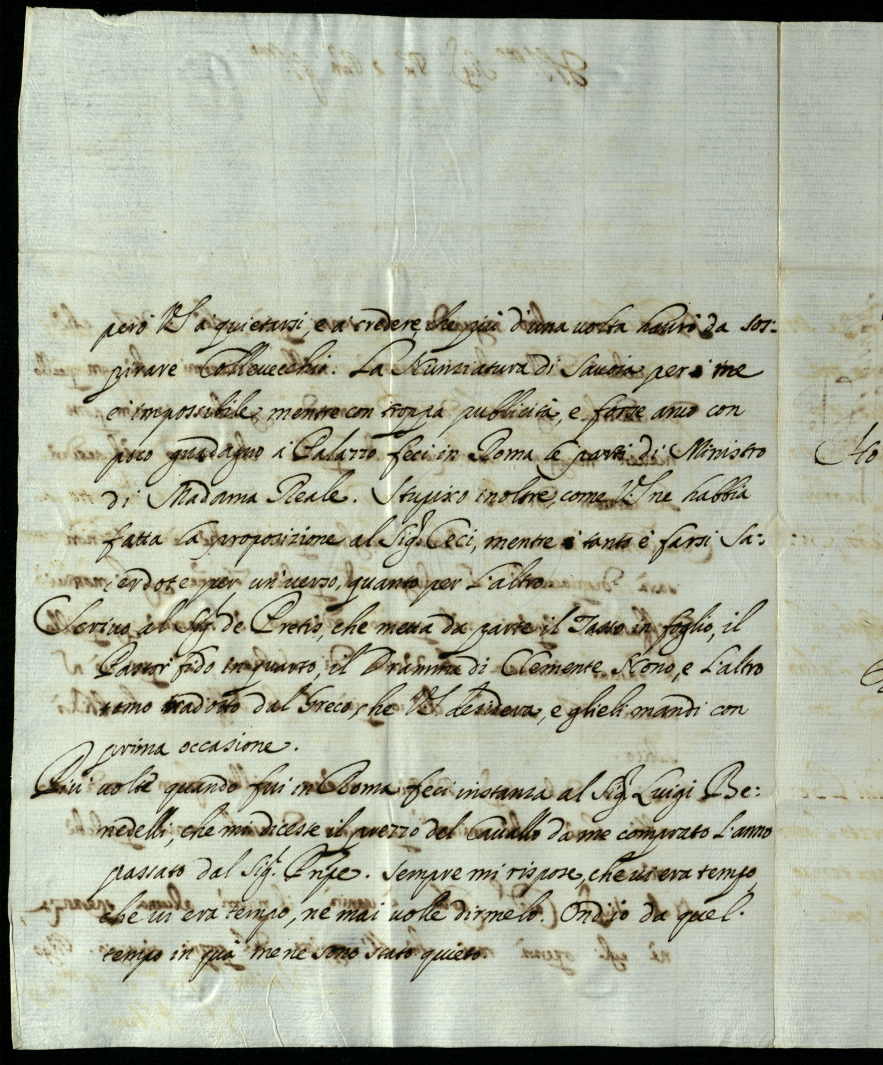 però VS a quietarsi, e a credere, che più d'una volta haurò da sos:
pirare Collevecchio. La Nunziatura di Savoia per me
è impossibile, mentre con troppa publicità, e forse anco con
poco guadagno a Palazzo feci in Roma le parti di Ministro
di Madama Reale. Stupisco inoltre, come VS ne habbia
fatta la proposizione al Sig.r Ceci, mentre tanto è farsi Sa:
cerdote per un uerso, quanto per l'altro.
Scrivo al Sig.r de Pretis, che metta da parte il Tasso in foglio, il
Pastor fido in quarto, il Dramma di Clemente Nono, e l'altro
tomo tradotto dal Greco, che VS desidera, e glieli mandi con
prima occasione.
Più uolte quando fui in Roma feci instanza al Sig.r Luigi Be:
nedelli, che mi dicesse il prezzo del Cavallo da me comprato l'anno
passato dal Sig.r Pnpe. Sempre mi rispose, che ui era tempo,
che ui era tempo, ne mai uolle dirmelo. Ond'io da quel
tempo in quà me ne sono stato quieto
Ho